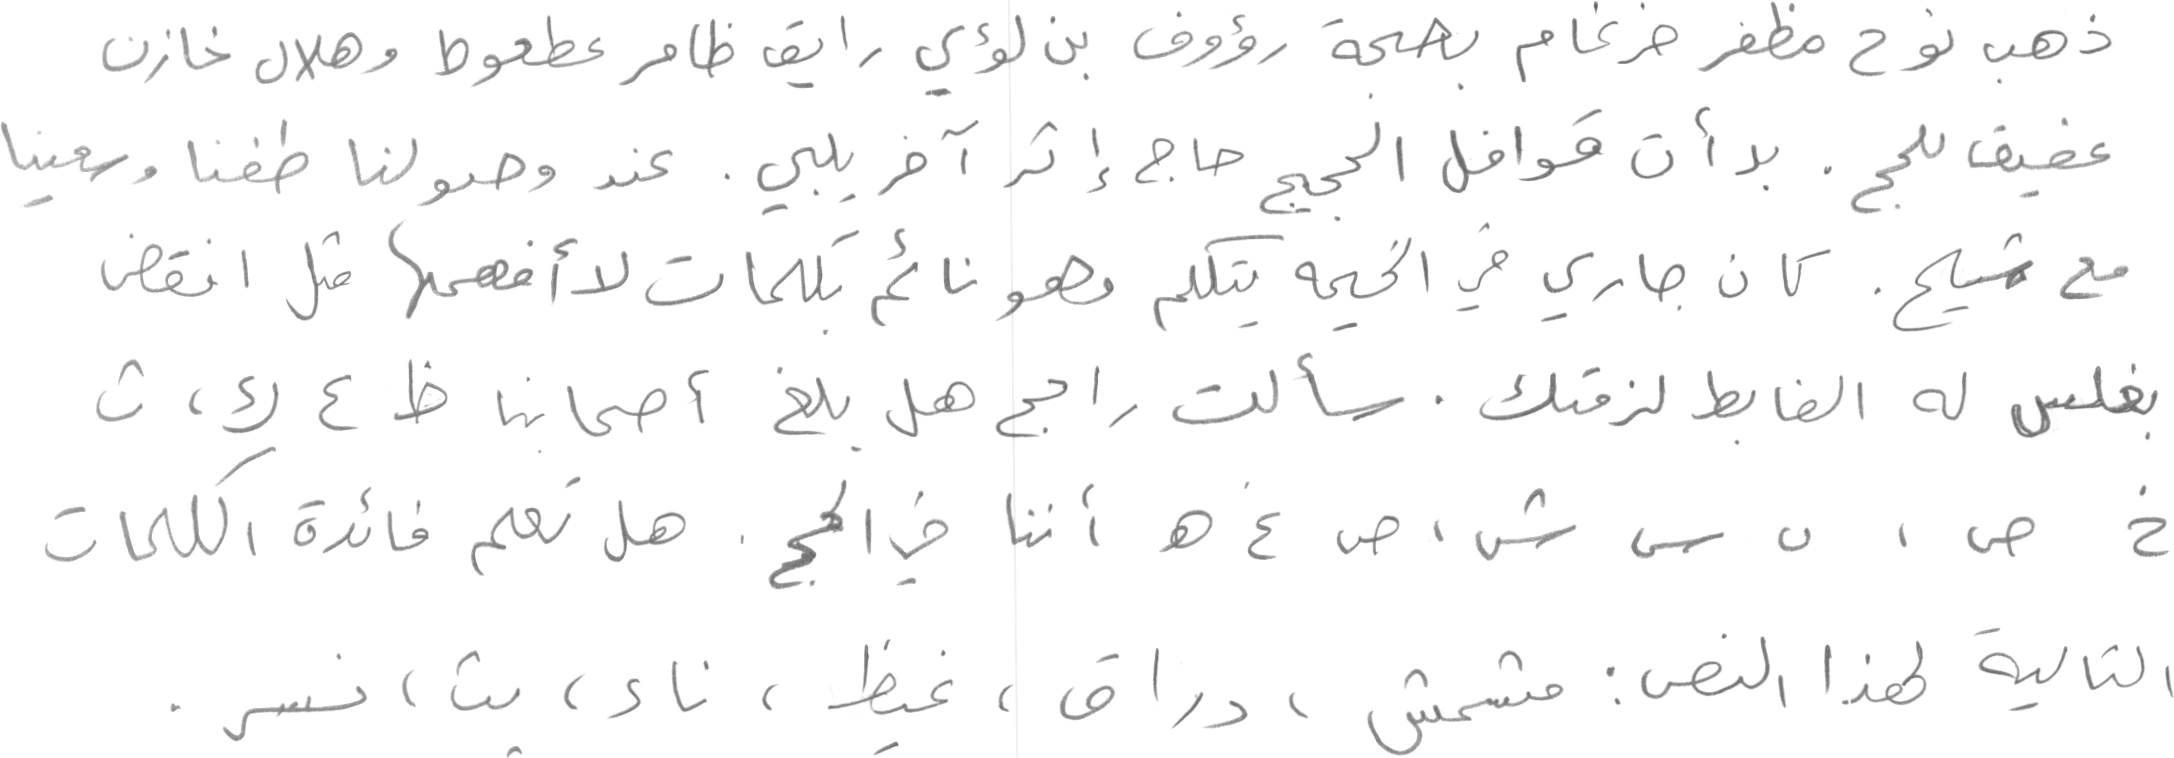 ذهب نوح مظفر ضرغام بصحبة رؤوف بن لؤي رايق ظافر عطعوط وهلال خازن
عفيف للحج . بدأت قوافل الحجيج حاج إثر آخر يلبي . عند وصولنا طفنا وسعينا
مع شيخ . كان جاري في الخيمه يتكلم وهو نائم بكلمات لا أفهمها مثل انقض
بغلس له الضابط لزقتك . سألت راجح هل بلغ أصحابنا ظ ع ك ، ث
خ ص ، ن س ش ، ض غ ه أننا في الحج . هل تعلم فائدة الكلمات
التالية لهذا النص : مشمش ، دراق ، غيظ ، ناء ، بث ، نسر .